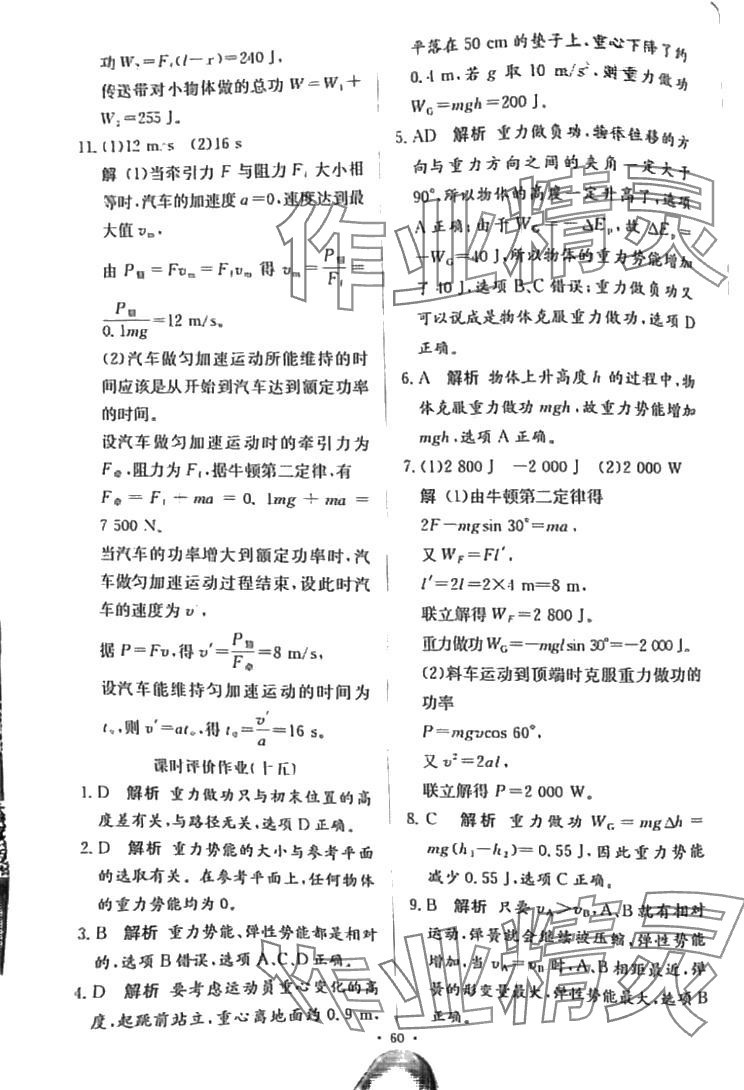 功 W₂=F₁(l-r)=240 J,
传送带对小物体做的总功 W=W₁+
W₂=255 J.
11. (1)12 m/s (2)16 s
解 (1)当牵引力 F 与阻力 F₁ 大小相
等时,汽车的加速度 a=0,速度达到最
大值 vₘ,
由 P额=Fvₘ=F₁vₘ 得 vₘ=P额/F₁=
P额/0.1mg=12 m/s.
(2)汽车做匀加速运动所能维持的时
间应该是从开始到汽车达到额定功率
的时间。
设汽车做匀加速运动时的牵引力为
F牵,阻力为 F₁,据牛顿第二定律,有
F牵=F₁+ma=0.1mg+ma=
7 500 N.
当汽车的功率增大到额定功率时,汽
车做匀加速运动过程结束,设此时汽
车的速度为 v′,
据 P=Fv,得 v′=P额/F牵=8 m/s,
设汽车能维持匀加速运动的时间为
t匀,则 v′=at匀,得 t匀=v′/a=16 s.
课时评价作业(十五)
1. D 解析 重力做功只与初末位置的高
度差有关,与路径无关,选项 D 正确。
2. D 解析 重力势能的大小与参考平面
的选取有关。在参考平面上,任何物体
的重力势能均为 0。
3. B 解析 重力势能、弹性势能都是相对
的,选项 B 错误,A、C、D 正确。
4. D 解析 要考虑运动员重心变化的高
度,起跳前站立,重心离地面约 0.9 m,
平落在 50 cm 的垫子上,重心下降了约
0.4 m,若 g 取 10 m/s²,则重力做功
W_G=mgh=200 J.
5. AD 解析 重力做负功,物体位移的方
向与重力方向之间的夹角一定大于
90°,所以物体的高度一定升高了,选项
A 正确;由于 W_G=-ΔEₚ,故 ΔEₚ=
-W_G=40 J,所以物体的重力势能增加
了 40 J,选项 B、C 错误;重力做负功又
可以说成是物体克服重力做功,选项 D
正确。
6. A 解析 物体上升高度 h 的过程中,物
体克服重力做功 mgh,故重力势能增加
mgh,选项 A 正确。
7. (1)2 800 J -2 000 J (2)2 000 W
解 (1)由牛顿第二定律得
2F-mgsin 30°=ma,
又 W_F=Fl′,
l′=2l=2×4 m=8 m,
联立解得 W_F=2 800 J.
重力做功 W_G=-mglsin 30°=-2 000 J.
(2)料车运动到顶端时克服重力做功的
功率
P=mgvcos 60°,
又 v²=2al,
联立解得 P=2 000 W.
8. C 解析 重力做功 W_G=mgΔh=
mg(h₁-h₂)=0.55 J,因此重力势能
减少 0.55 J,选项 C 正确。
9. B 解析 只要 v_A>v_B,A、B 就有相对
运动,弹簧就会继续被压缩,弹性势能
增加。当 v_A=v_B 时 A、B 相距最近,弹
簧的形变量最大,弹性势能最大,选项 B
正确。
· 60 ·
作业精灵
作业精灵